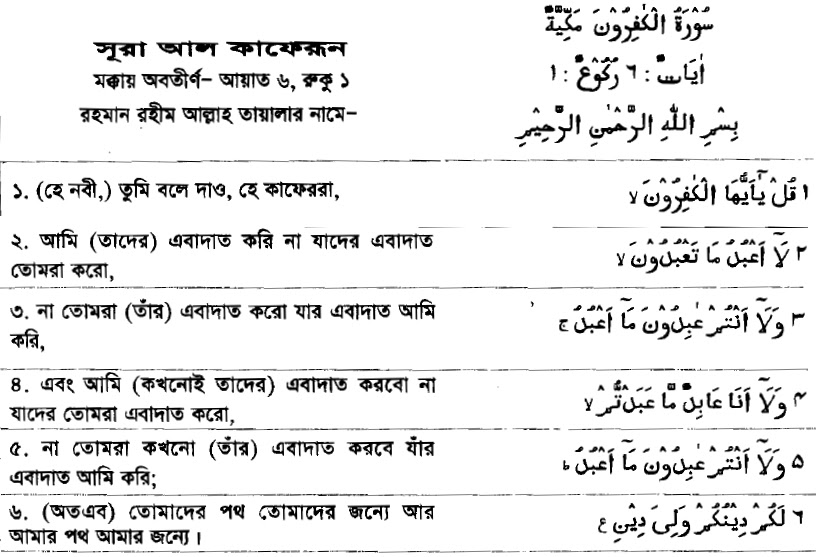 সূরা আল কাফেরূন
মক্কায় অবতীর্ণ– আয়াত ৬, রুকু ১
রহমান রহীম আল্লাহ তায়ালার নামে–
سُوْرَةُ الْكٰفِرُوْنَ مَكِّيَّةٌ
اٰيَاتٌ : ٦ رُكُوْعٌ : ١
بِسْمِ اللّٰهِ الرَّحْمٰنِ الرَّحِيْمِ
১. (হে নবী,) তুমি বলে দাও, হে কাফেররা,
١ قُلْ يٰٓاَيُّهَا الْكٰفِرُوْنَ ۙ
২. আমি (তাদের) এবাদাত করি না যাদের এবাদাত
তোমরা করো,
٢ لَآ اَعْبُدُ مَا تَعْبُدُوْنَ ۙ
৩. না তোমরা (তাঁর) এবাদাত করো যার এবাদাত আমি
করি,
٣ وَلَآ اَنْتُمْ عٰبِدُوْنَ مَآ اَعْبُدُ ۚ
৪. এবং আমি (কখনোই তাদের) এবাদাত করবো না
যাদের তোমরা এবাদাত করো,
٤ وَلَآ اَنَا عَابِدٌ مَّا عَبَدْتُّمْ ۙ
৫. না তোমরা কখনো (তাঁর) এবাদাত করবে যাঁর
এবাদাত আমি করি;
٥ وَلَآ اَنْتُمْ عٰبِدُوْنَ مَآ اَعْبُدُ ؕ
৬. (অতএব) তোমাদের পথ তোমাদের জন্যে আর
আমার পথ আমার জন্যে।
٦ لَكُمْ دِيْنُكُمْ وَلِىَ دِيْنِ ع